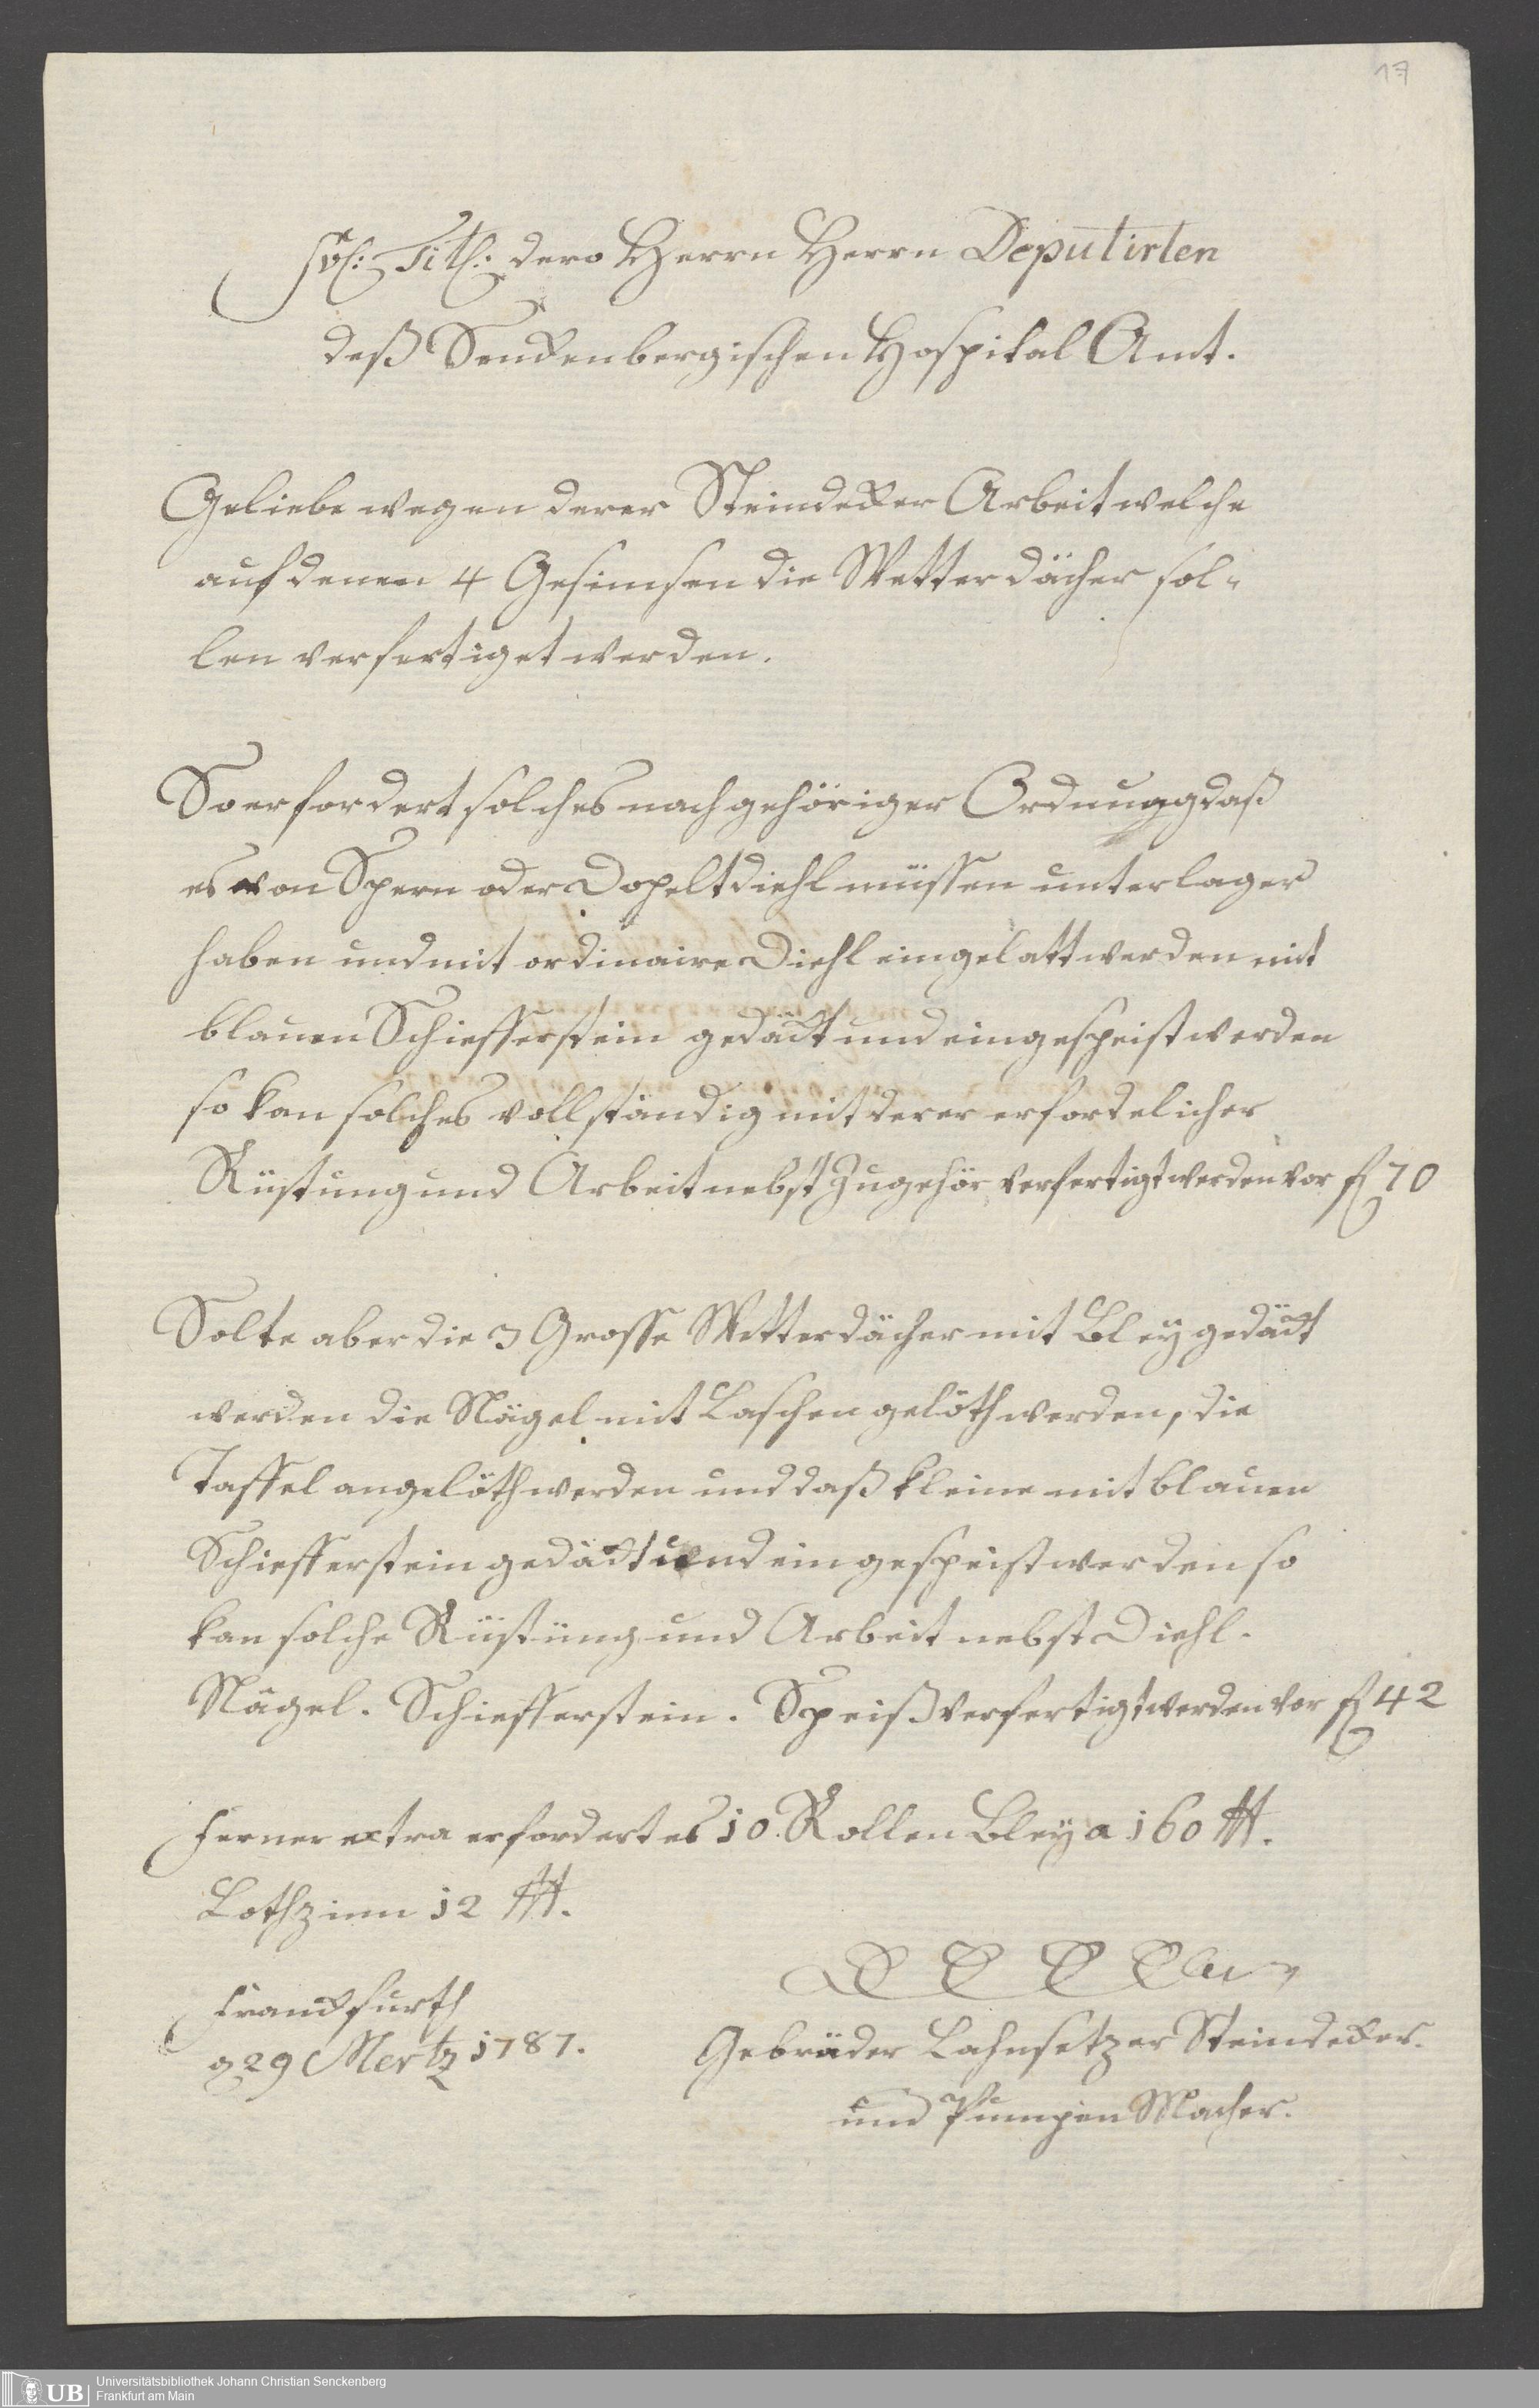 17
Titl: dero Herrn Herrn Deputirten
deß Senckenbergischen Hospital Amt.
Geliebe wegen derer Steindecker Arbeit welche
auf denen 4 Gesimsen die Wetterdächer sol-
len verfertiget werden.
So erfordert solches nach gehöriger Ordnung daß
es von Spern oder Dopelt diehl müssen unterlager
haben und mit ordinaire Diehl eingelatt werden mit
blauen Schiefferstein gedäckt und eingespeist werden
so kan solches vollständig mit derer erfordelicher
Rüstung und Arbeit nebst Zugehör verfertigt werden vor fl 70
Solte aber die 3 Grosse Wetterdächer mit Bley gedäckt
werden die Nägel mit Laschen gelöth werden, die
Taffel angelöth werden und daß kleine mit blauen
Schiefferstein gedäckt und eingespeist werden so
kan solche Rüstüng und Arbeit nebst Diehl.
Nägel. Schiefferstein. Speiß verfertigt werden vor fl 42
Ferner extra erfordert es 10. Rollen Bley a 160 ℔.
Lothzinn 12 ℔.
Franckfurth
29 Mertz 1787.
Gebrüder Lahnsetzer Steindecker.
und Pumpen Macher.
UB
Universitätsbibliothek Johann Christian Senckenberg
Frankfurt am Main